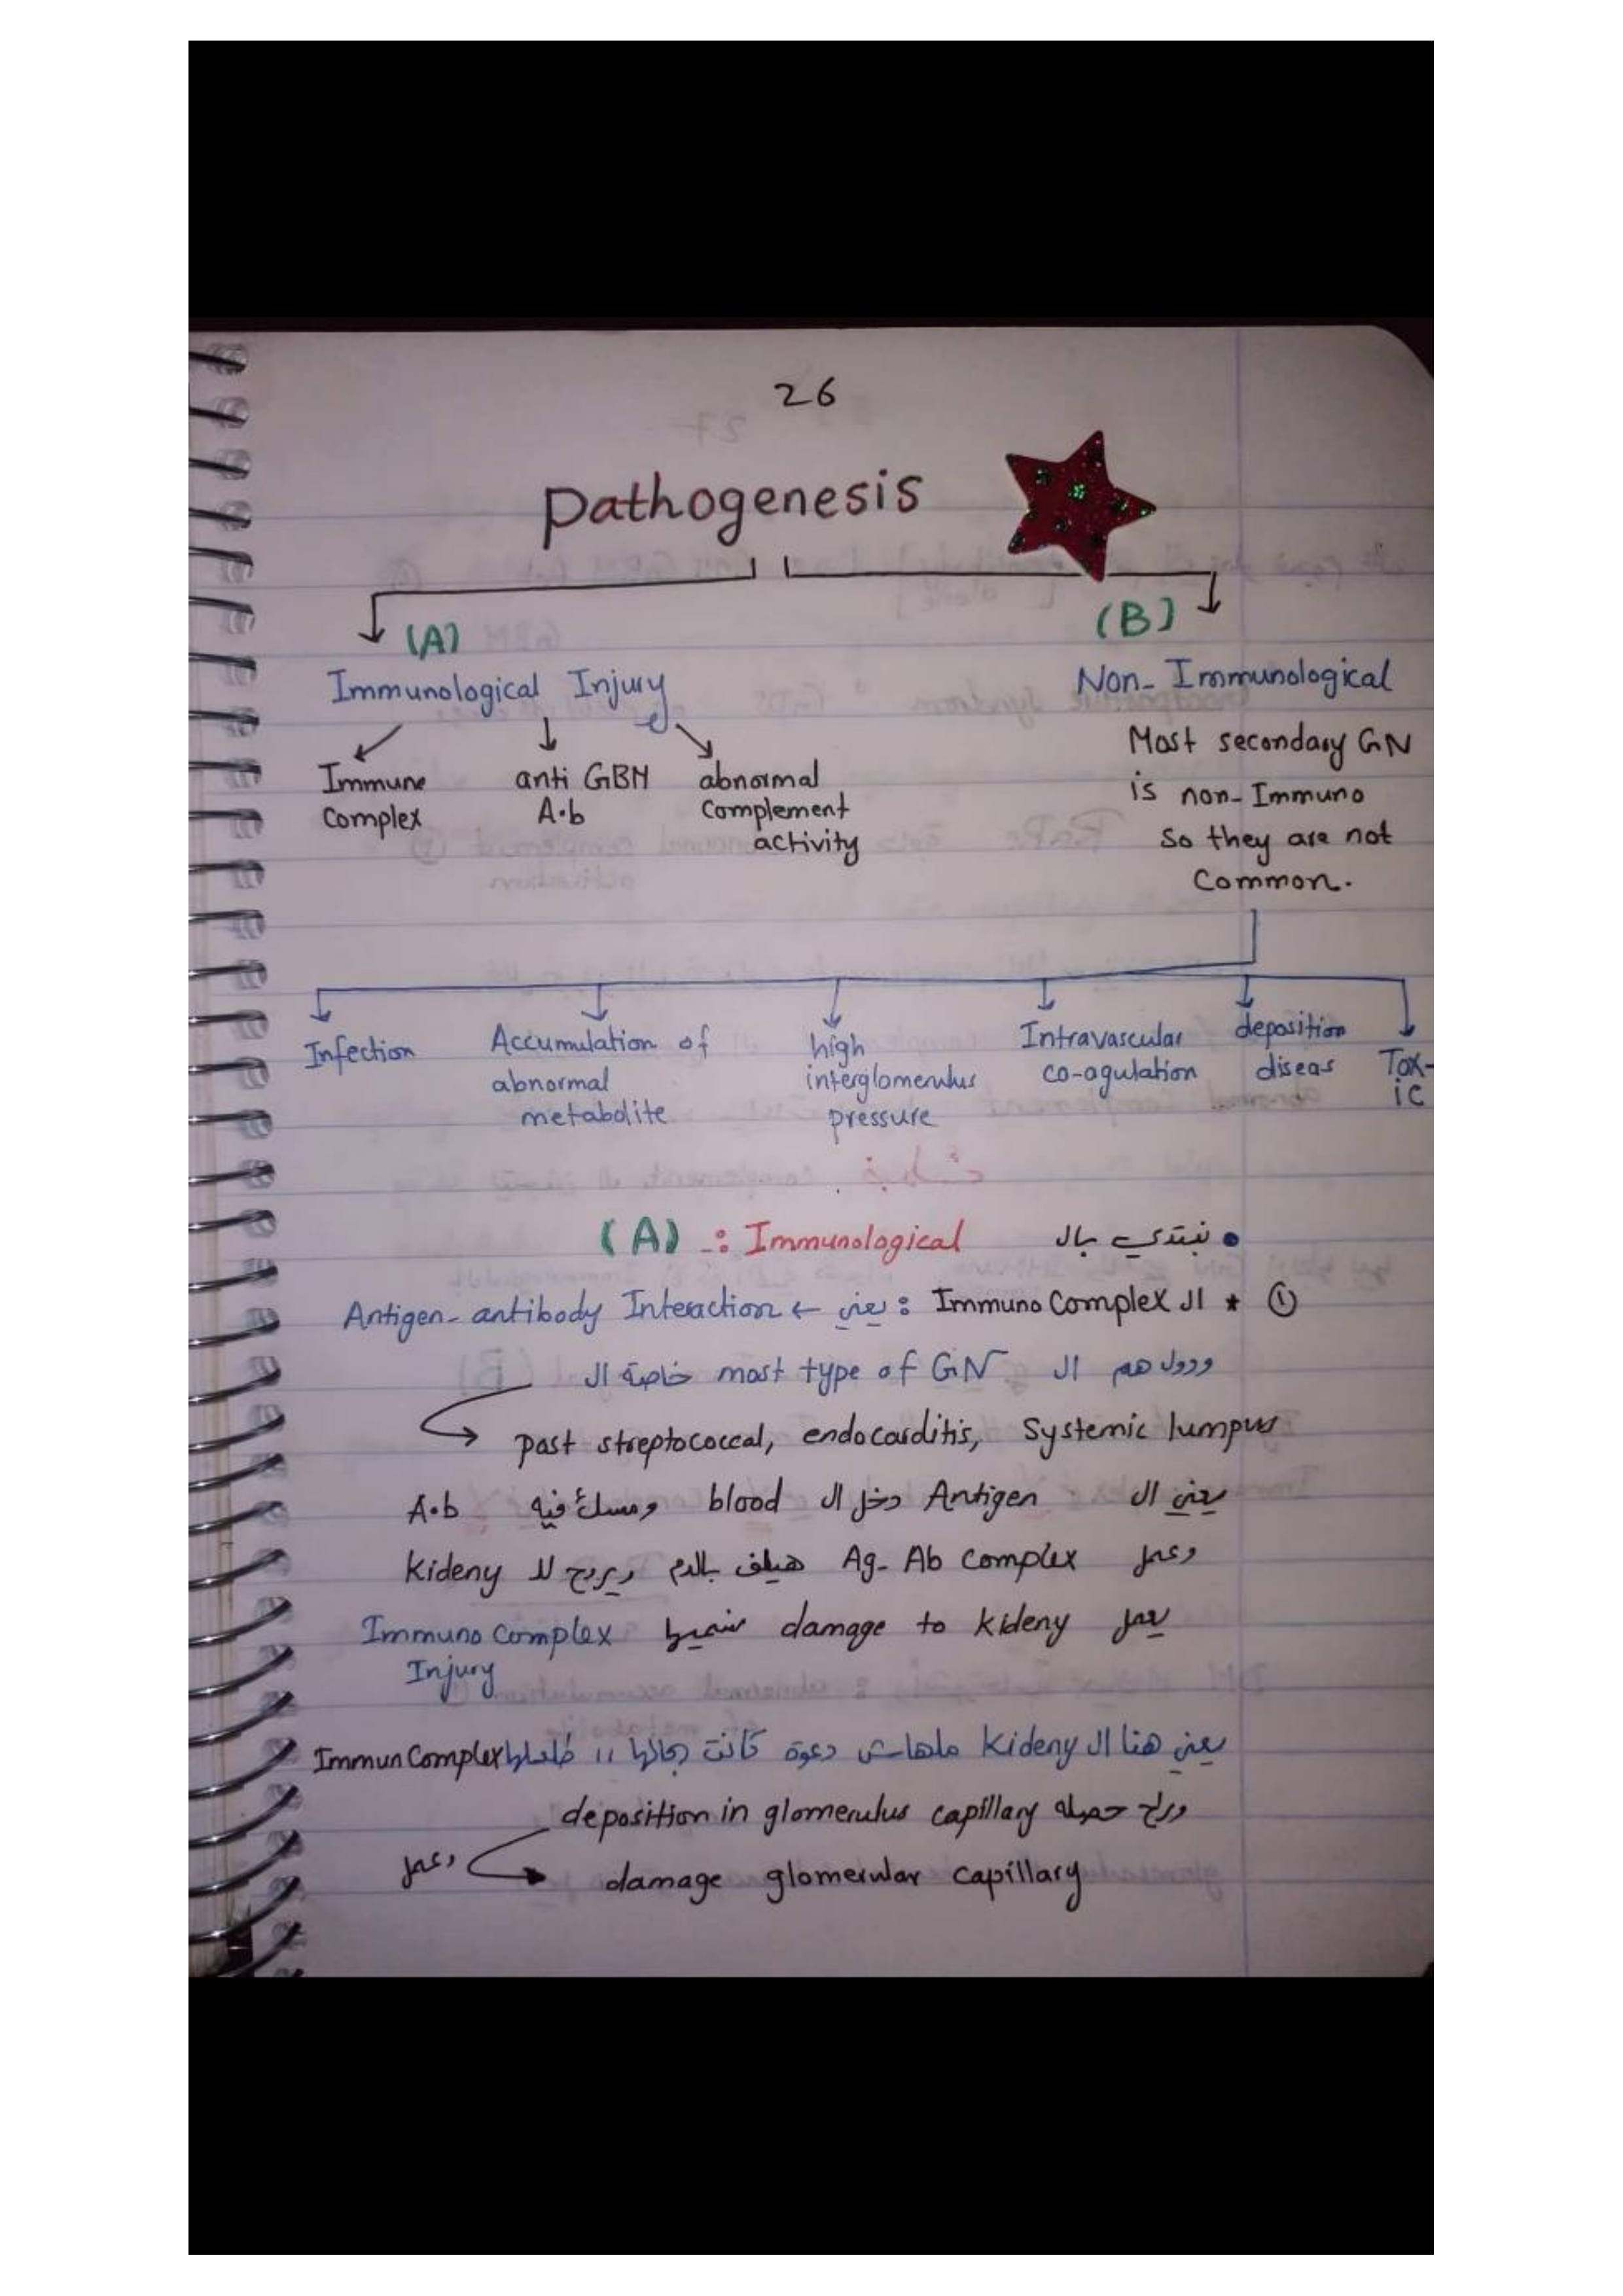 26
pathogenesis
(A)
(B)
Immunological Injury
Non-Immunological
Immune Complex
anti GBM A.b
abnormal Complement activity
Most secondary GN
is non-Immuno
so they are not
Common.
Infection
Accumulation of abnormal metabolite
high interglomerulus pressure
Intravascular co-agulation
deposition diseas
Tox-ic
• نبتدي بال Immunological :. (A)
① * ال Immuno Complex : يعني ← Antigen-antibody Interaction
ودول هم ال most type of GN خاصة ال
past streptococcal, endocarditis, Systemic lumpus
يعني ال Antigen دخل ال blood ومسك فيه A.b
وعمل Ag-Ab complex هيلف بالدم ويروح لل Kideny
يعمل damage to Kideny Immuno Complex
Injury
يعني هنا ال Kideny ملهاش دعوة كانت بحالها !! طلعلها Immun Complex
وراح حصله deposition in glomerulus capillary
وعمل damage glomerular capillary